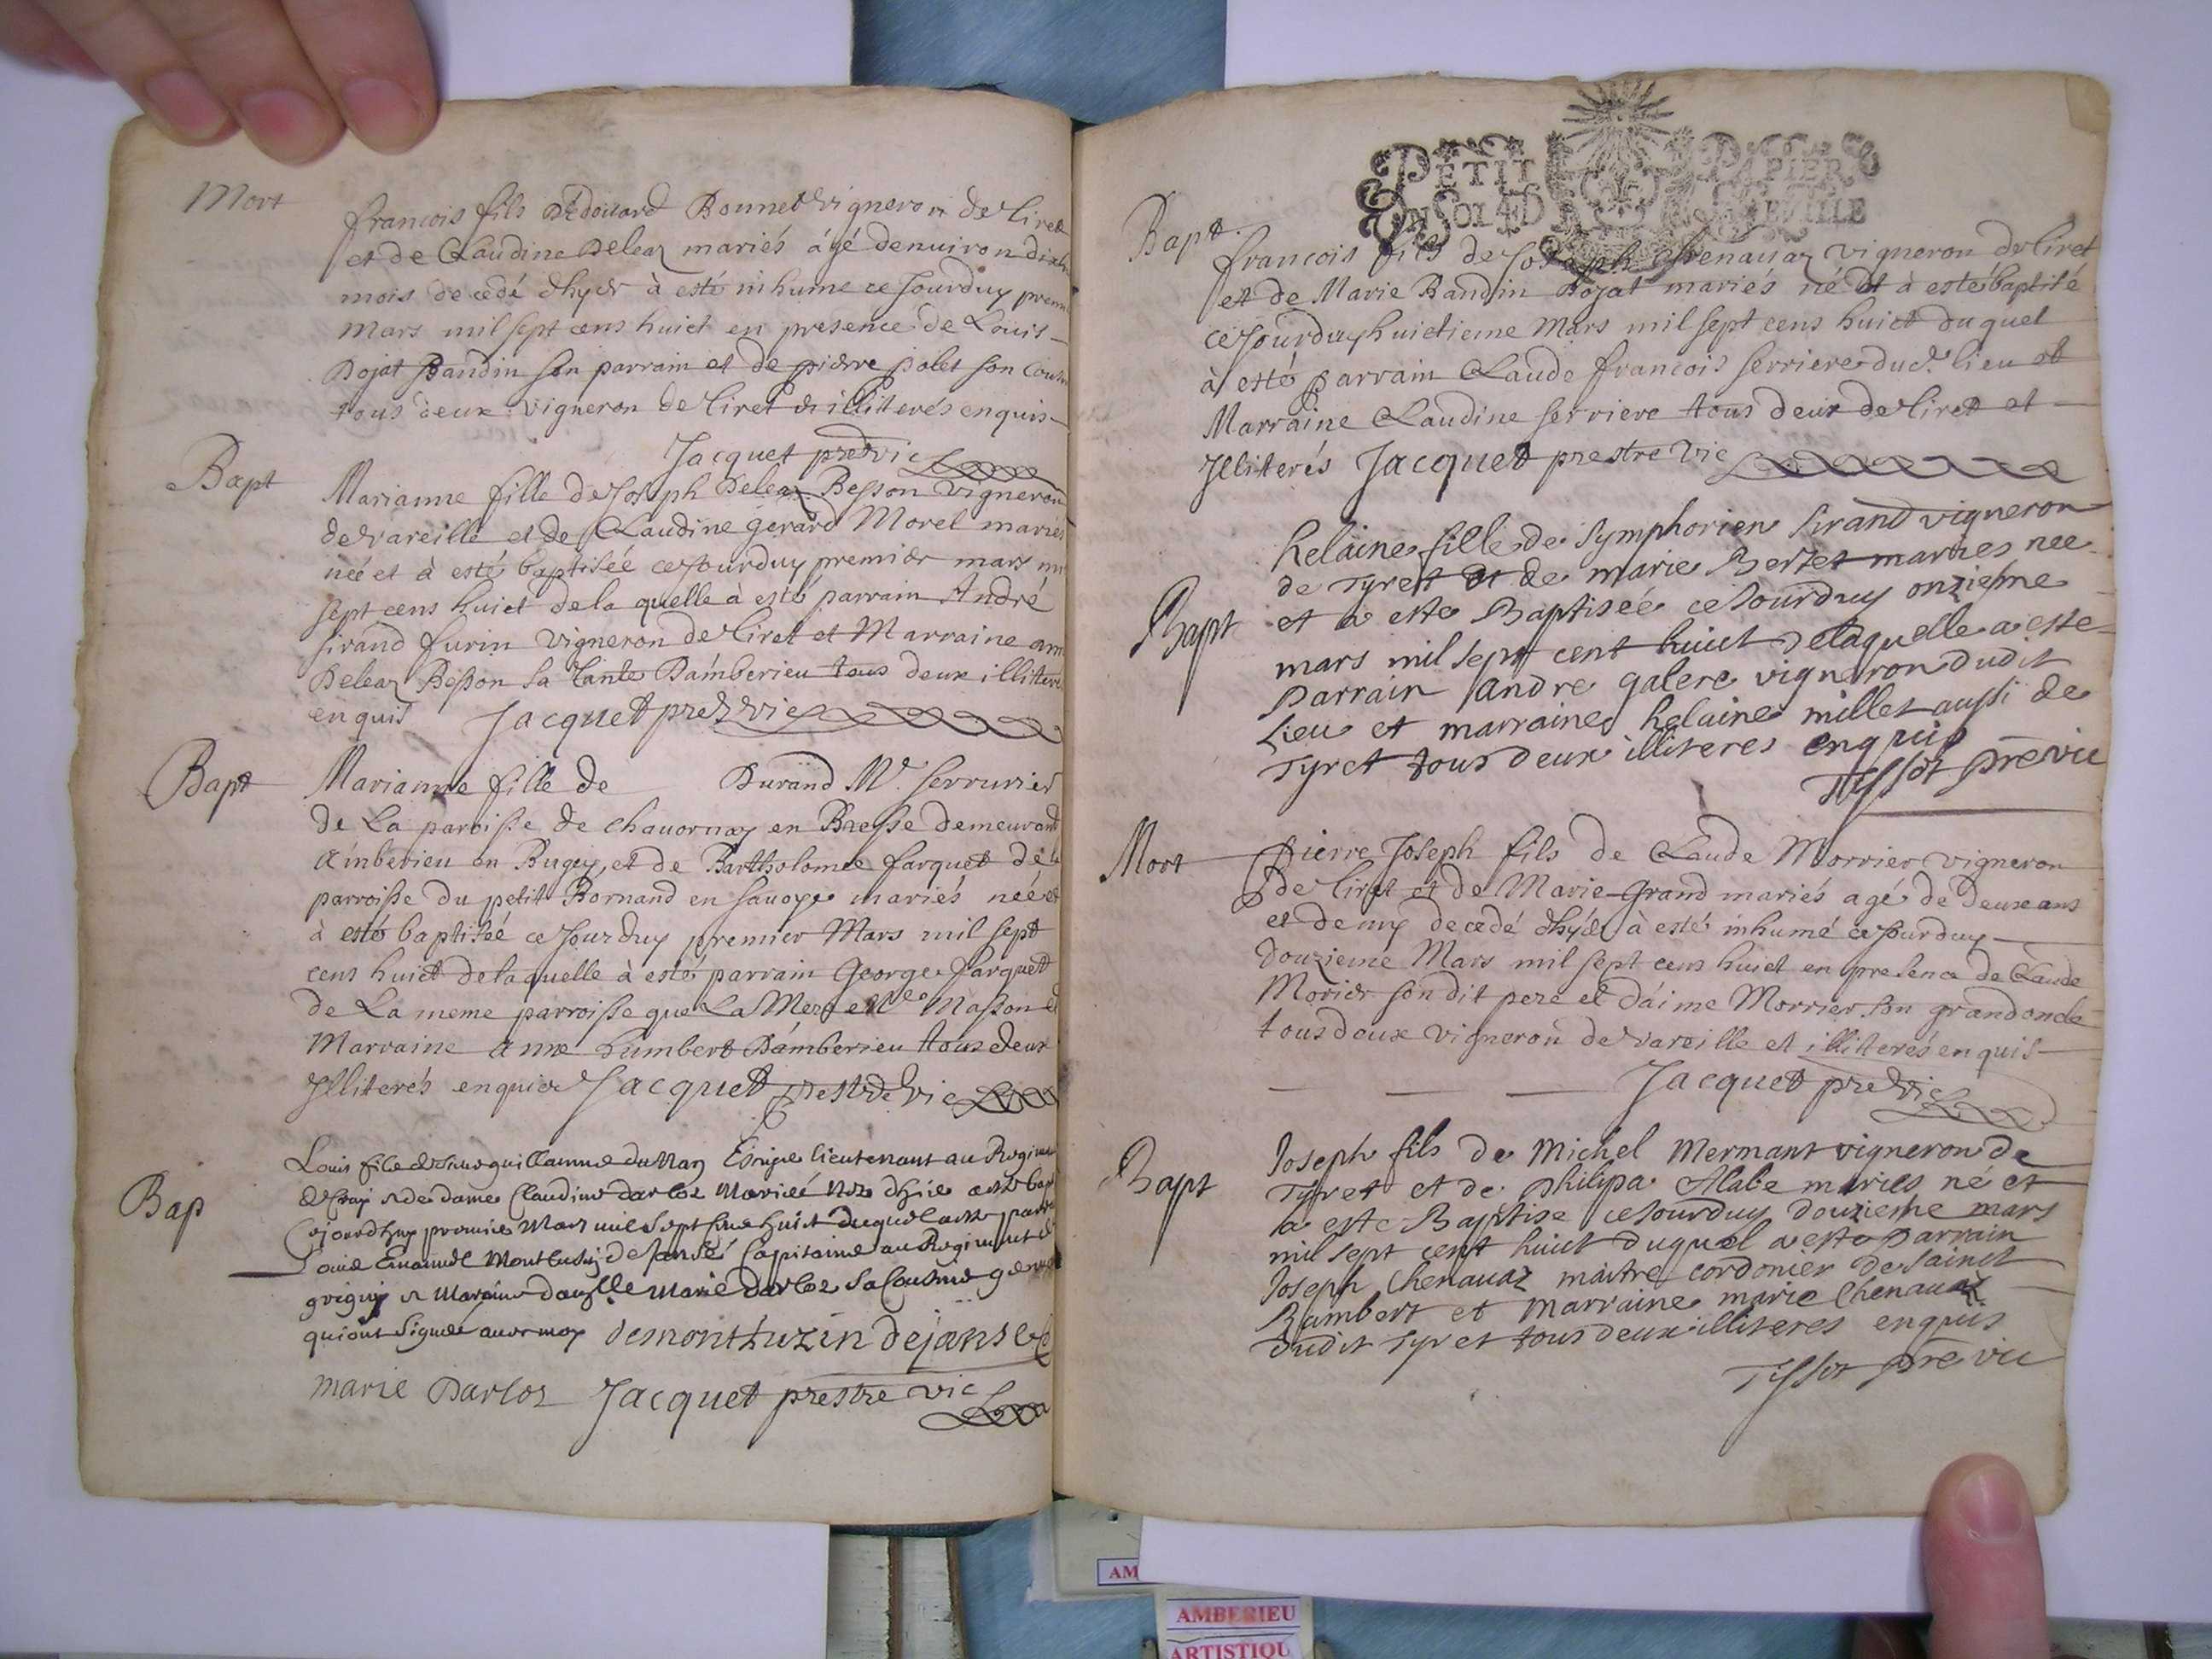 Mort
francois fils Dédoüard Bonnet vigneron de tiret
et de Claudine Deleaz mariés âgé denuiron dix
mois decedé dhyer à esté inhume ce Jourduy prem
Mars mil sept cens huict en presence de Louis
Dojat Bandin son parrain et de pierre polet son Cous
tous deux vigneron de tiret & illiterés enquis
Jacquet pretre vic
Bapt
Marianne fille de Joseph Deleaz Besson vigneron
de vareille et de Claudine gerard Morel mariés
neé et à esté baptisée ce Jourduy premier mars mil
sept cens huict de la quelle à esté parrain André
sirand furin vigneron de tiret et Marraine ann
Deleaz Besson sa tante Dámberieu tous deux illitere
enquis Jacquet pretre vic
Bapt
Marianne fille de Durand Mr. serrurier
de La paroisse de chauornay en Bresse demeurant
Amberieu en Bugey, et de Bartholomee farquet de la
parroisse du petit Bornand en sauoye mariés neé et
à esté baptiseé ce Jourduy premier Mars mil sept
cens huict de laquelle à esté parrain George farquet
de La meme parroisse que La Mere Masson et
Marraine anne humbert Dámberieu tous deux
Jlliterés enquis Jacquet prestre vic
Bap
Louis fils de guillaume du Escuyer lieutenant au Regime
et de dame Claudine darloz mariés né dhier a esté bap
Cejourdhuy premier Mars mil sept huict duquel a esté parr
Louis Emanuel Montlusin de Jansé Capitaine au Regiment
grigny et Maraine dauzlle Marie darloz sa Cousine
qui ont signés auec moy Demonthuzin dejansé
marie Darloz Jacquet prestre vic
PETIT PAPIER
UN SOL 4 D LA FEVILLE
Bapt.
francois fils de Joseph chenauaz vigneron de tiret
et de Marie Bandin Dojat mariés né et à esté baptisé
ce Jourduy huictieme Mars mil sept cens huict duquel
à esté parrain Claude francois serriere dud. lieu et
Marraine Claudine serriere tous deux de tiret et
Jlliterés Jacquet prestre vic
Bapt
helaine fille de Symphorien sirand vigneron
de Tyret et de marie Bertet mariés nee
et a este Baptisée ce Jourduy onzieme
mars mil sept cent huict delaquelle a este
parrain andre galere vigneron dudit
lieu et marraine helaine millet aussi de
Tyret tous deux illiteres enquis
Tissot pre vic
Mort
Pierre Joseph fils de Claude Morrier vigneron
de tiret et de Marie grand mariés agé de deux ans
et demy decedé dhyer à esté inhumé ce Jourduy
douzieme Mars mil sept cens huict en presence de Claude
Morier son dit pere et dáime Morrier son grand oncle
tous deux vigneron de vareille et illiterés enquis
Jacquet pretre vic
Bapt
Joseph fils de Michel Mermant vigneron de
Tyret et de philipa Alabe mariés né et
a este Baptise ce Jourduy douzieme mars
mil sept cent huict duquel a este parrain
Joseph Chenauaz maitre cordonier de sainct
Rambert et marraine marie Chenauaz
dudit Tyret tous deux illiteres enquis
Tissot pre vic
AM
AMBERIEU
ARTISTIQU